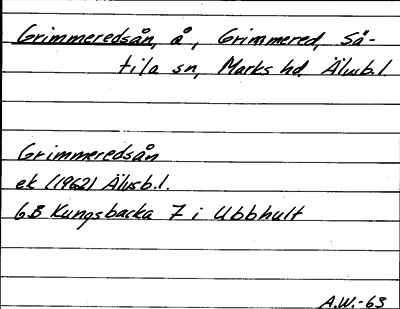 Grimmeredsån, å, Grimmered, Sä-
tila sn, Marks hd, Älvsb.l.
Grimmeredsån
ek (1962) Älvsb.l.
6B Kungsbacka 7 i Ubbhult
A.W.-63